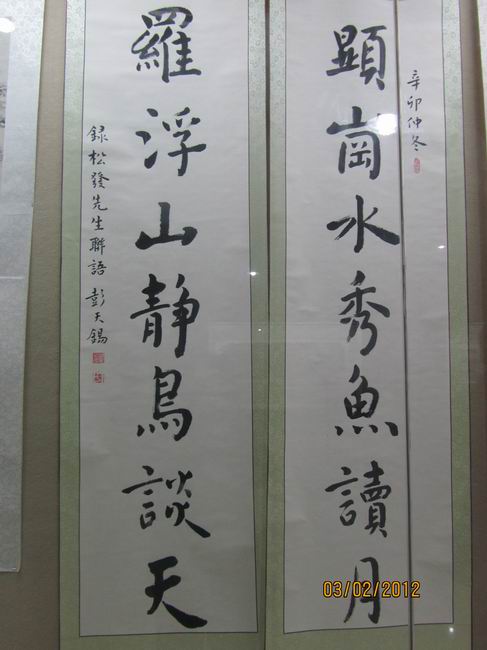 辛卯仲冬
顯崗水秀魚讀月
羅浮山靜鳥談天
録松發先生聯語 彭天錫
03/02/2012